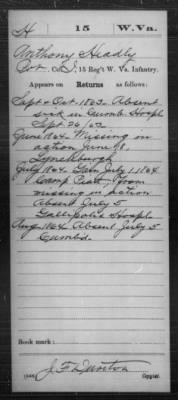 H | 15 | W. Va.
Anthony Headly
Cor., Co. I, 15 Reg't W. Va. Infantry.
Appears on Returns as follows:
Sept & Oct. 1863. Absent
sick in Cumb. Hospl
Sept. 26/63
June 1864. Missing in
action June 18,
Lynchburgh
July 1864. Gain July 1, 1864
Camp Piatt, from
missing in action
Absent July 5
Gallipolis Hospl.
Aug. 1864 Absent July 5
Cumbd.
Book mark:
(546)
Copyist.